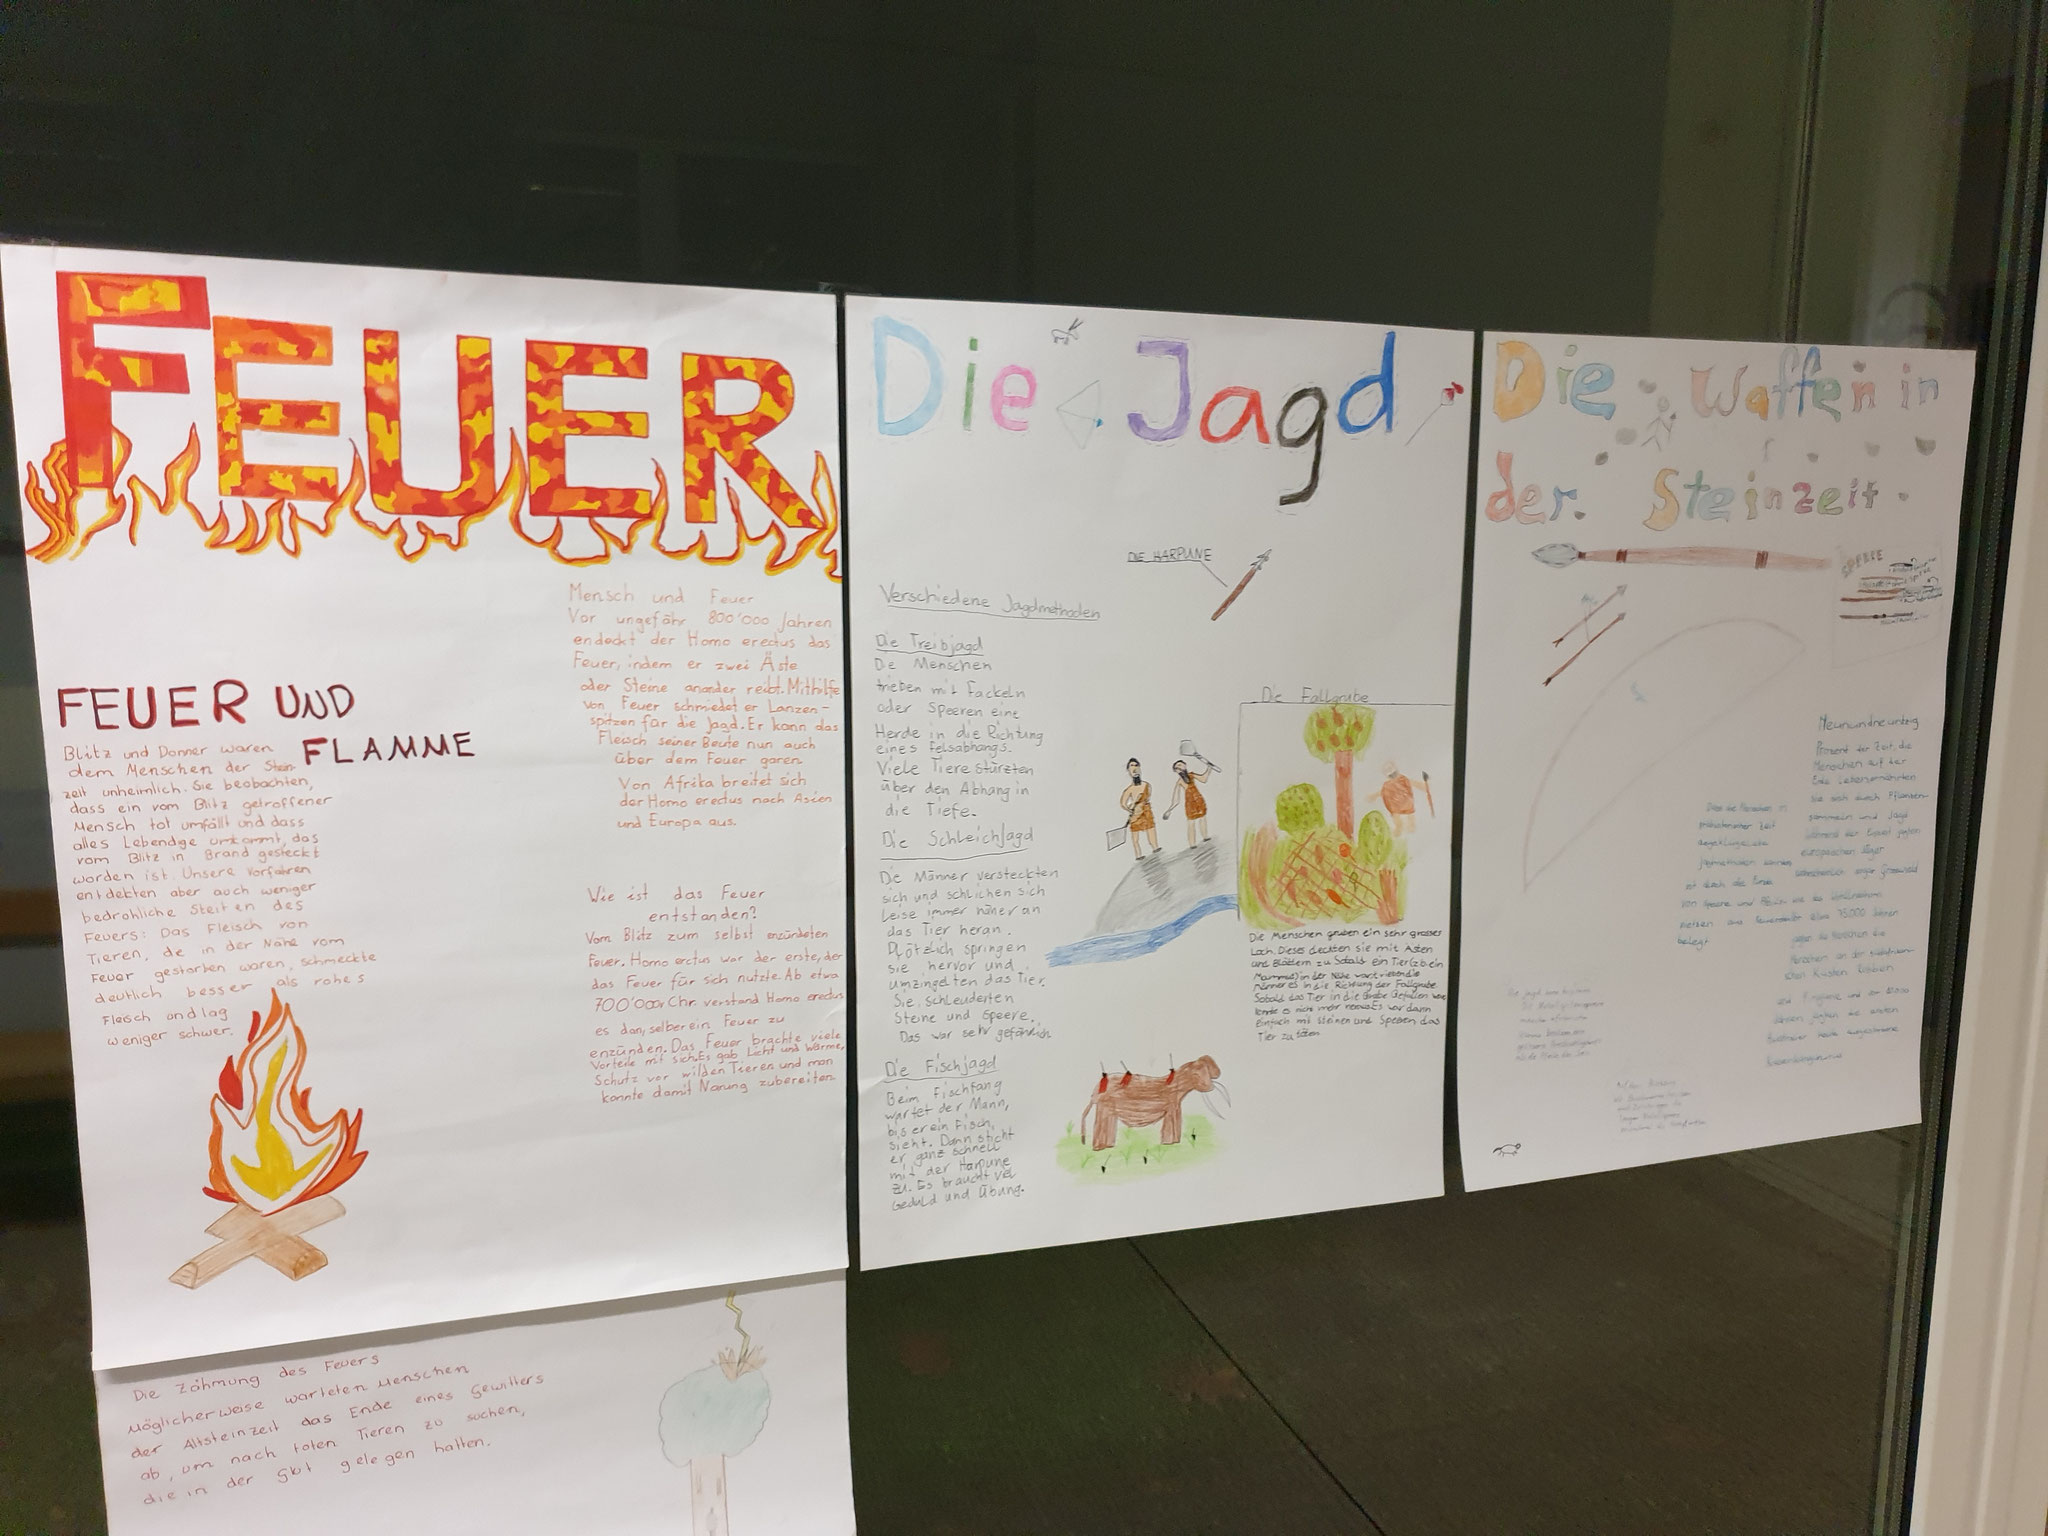 FEUER
FEUER UND
FLAMME
Blitz und Donner waren
dem Menschen der Stein-
zeit unheimlich. Sie beobachten,
dass ein vom Blitz getroffener
Mensch tot umfällt und dass
alles Lebendge umkommt, das
vom Blitz in Brand gesteckt
worden ist. Unsere Vorfahren
entdekten aber auch weniger
bedrohliche Steiten des
Feuers: Das Fleisch von
Tieren, de in der Nähe vom
Feuer gestorben waren, schmeckte
deutlich besser als rohes
Fleisch und lag
weniger schwer.
Mensch und Feuer
Vor ungefähr 800'000 Jahren
endeckt der Homo erectus das
Feuer, indem er zwei Äste
oder Steine anander reibt. Mithilfe
von Feuer schmiedet er Lanzen-
spitzen für die Jagd. Er kann das
Fleisch seiner Beute nun auch
über dem Feuer garen.
Von Afrika breitet sich
der Homo erectus nach Asien
und Europa aus.
Wie ist das Feuer
entstanden?
Vom Blitz zum selbst enzündeten
Feuer. Homo erctus war der erste, der
das Feuer für sich nutzte. Ab etwa
700'000v. Chr. verstand Homo erectus
es dan, selber ein Feuer zu
enzünden. Das Feuer brachte viele
Vorteile mit sich. Es gab Licht und Wärme,
Schutz vor wilden Tieren und man
konnte damit Narung zubereiten.
Die Zähmung des Feuers
Möglicherweise warteten Menschen
der Altsteinzeit das Ende eines Gewitters
ab, um nach toten Tieren zu suchen,
die in der Glut gelegen hatten.
Die Jagd
DIE HARPUNE
Verschiedene Jagdmethoden
Die Treibjagd
Die Menschen
trieben mit Fackeln
oder Speeren eine
Herde in die Richtung
eines Felsabhangs.
Viele Tiere stürzten
über den Abhang in
die Tiefe.
Die Schleichjagd
Die Männer versteckten
sich und schlichen sich
Leise immer näher an
das Tier heran.
Plötzlich springen
sie hervor und
umzingelten das Tier.
Sie schleuderten
Steine und Speere.
Das war sehr gefährlich
Die Fischjagd
Beim Fischfang
wartet der Mann,
bis er ein Fisch,
sieht. Dann sticht
er ganz schnell
mit der Harpune
zu. Es braucht viel
Geduld und Übung.
Die Fallgrube
Die Menschen gruben ein sehr grosses
Loch. Dieses deckten sie mit Asten
und Blättern zu. Sobald ein Tier (z.b. ein
Mammut) in der Nähe war trieben die
Männer es in die Richtung der Fallgrube
Sobald das Tier in die Grube Gefallen war
konte es nicht mehr heraus. Es war dann
Einfach mit steinen und Speeren das
Tier zu töten
Die Waffen in
der Steinzeit
SPEERE
Neunundneunzig
Prozent der Zeit, die
Menschen auf der
Erde Leben ernährten
sie sich durch Pflanzen-
sammeln und Jagd